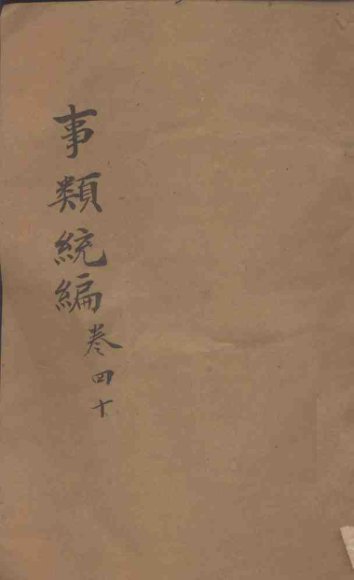 事類統編卷四十